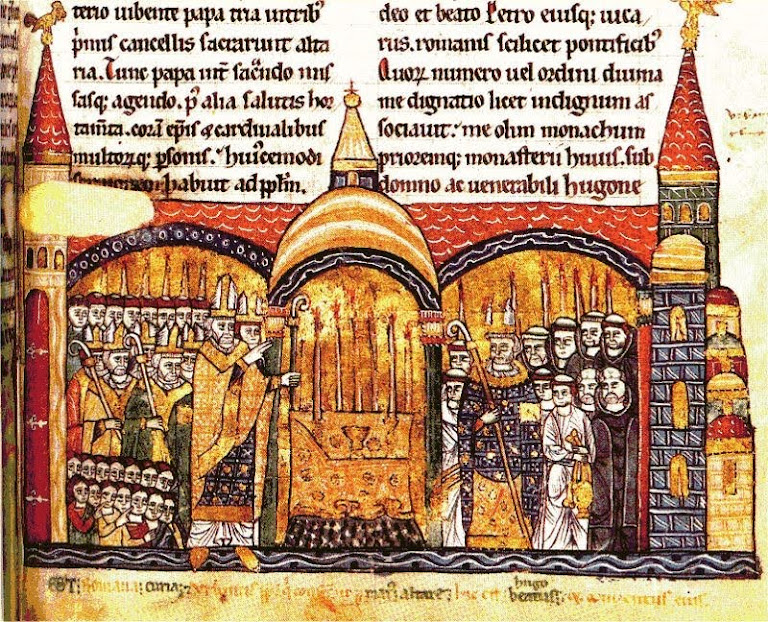 terio iubente papa tria intrib᾽
p̍mis cancellis sacrarunt alta
ria. Tunc papa int̄ sac̄ndo mis
sasq; agendo. p᾽ alia salutis hor
tam̄ta. corā ep̄is & cardinalibus
multorq; p̄sonis. hui᾽cemodi
habuit ad pp̄lm̄.
deo et beato Petro eiusq; uica
riis. romanis scilicet pontificib᾽
Quoꝝ numero uel ordini diuina
me dignatio licet indignum as
sociauit. me olim monachum
prioremq; monasterii huius. sub
domno ac uenerabili hugone
Romana; curia; altare;
hugo
beatus;